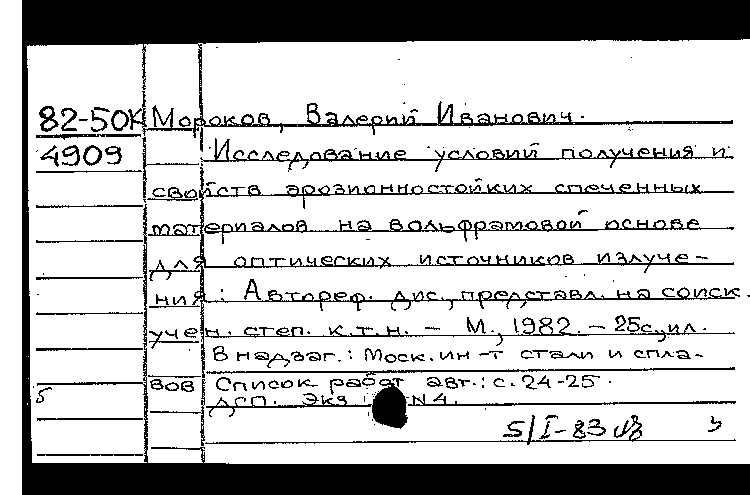 82-50К Мороков, Валерий Иванович.
4909 Исследование условий получения и
свойств эрозионностойких спеченных
материалов на вольфрамовой основе
для оптических источников излуче-
ния: Автореф. дис., представл. на соиск.
учен. степ. к.т.н. - М., 1982. - 25с., ил.
В надзаг.: Моск. ин-т стали и спла-
вов Список работ авт.: с. 24-25.
5
ДСП. Экз N4.
5/I-83